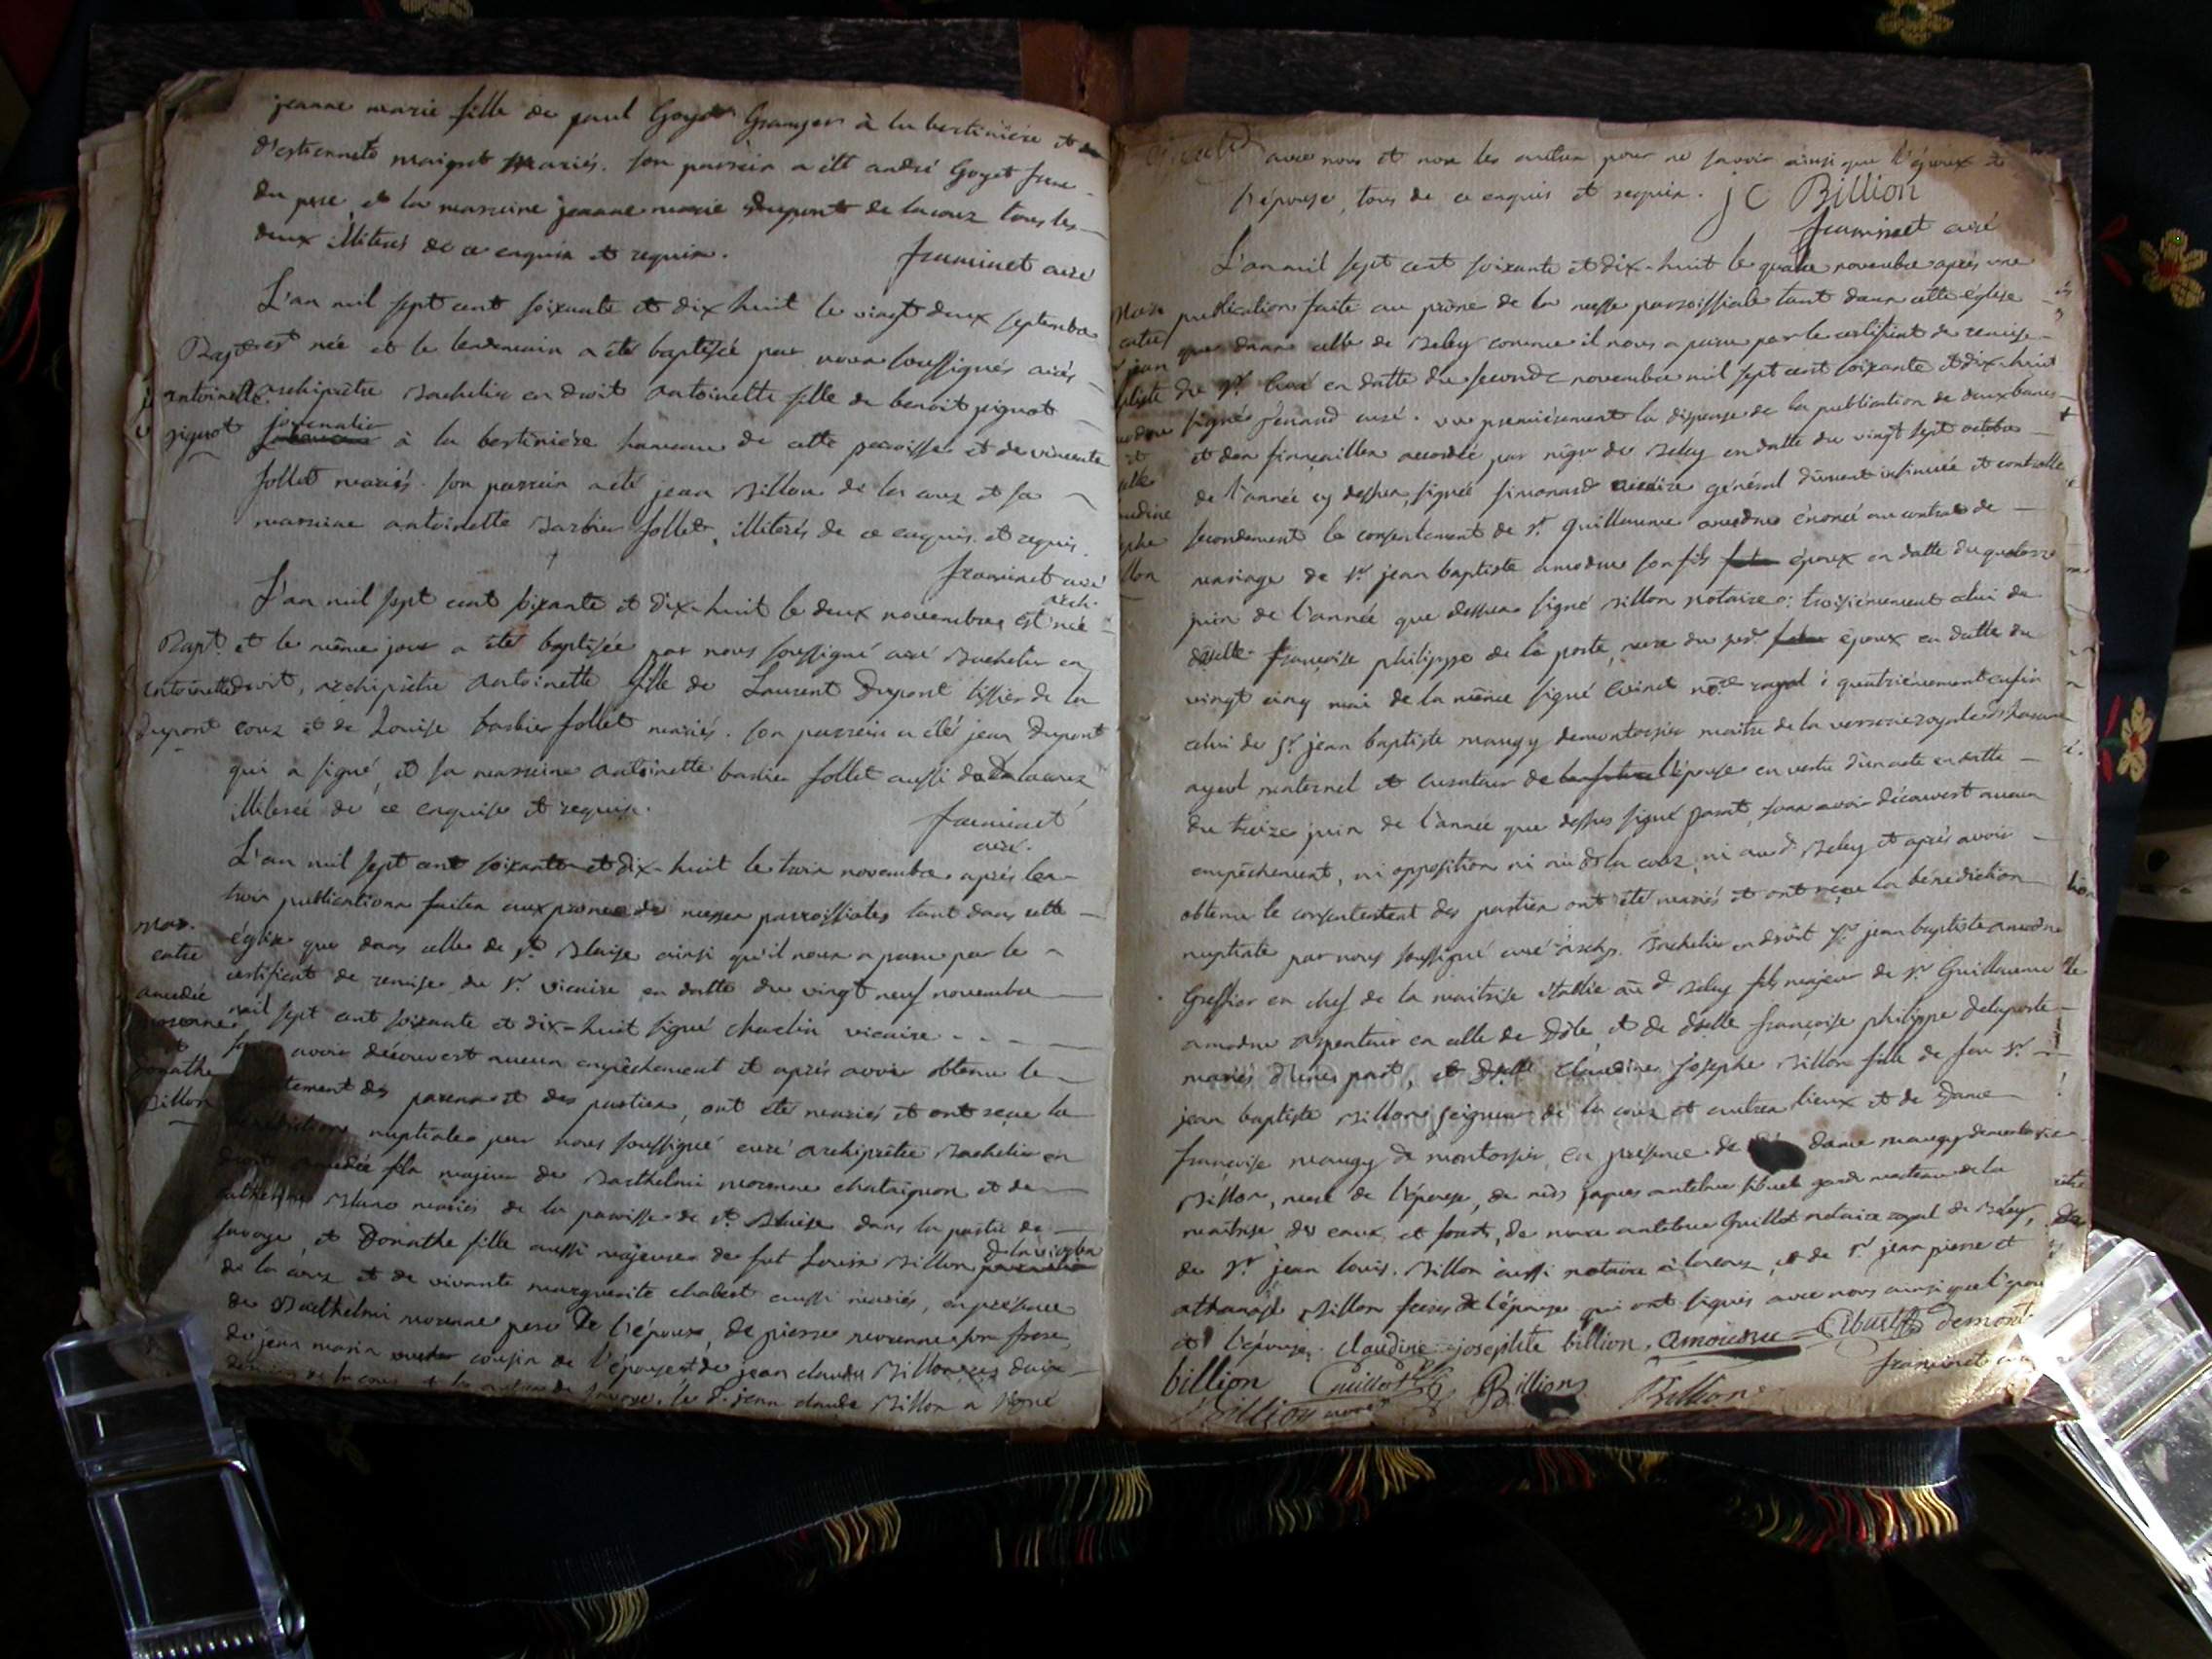 jeanne marie fille de paul Goyet Granger à la bertinière et de
d'estiennete maigret mariés. son parrein a été andré Goyet frere
du pere, et la marreine jeanne marie dupont de lacouz tous les
deux illiterés de ce enquis et requis.
framinet curé
L'an mil sept cent soixante et dix huit le vingt deux septembre
Bapt. est née et le lendemain a été baptisée par nous soussignés curé
antoinette archiprêtre Bachelier en droit antoinette fille de benoit pignot
pignot journalier à la bertinière hameau de cette paroisse et de vincente
follet mariés. son parrein a été jean Billon de la couz et sa
marreine antoinette Barbier follet, illiterés de ce enquis et requis.
framinet curé
arch.
L'an mil sept cent soixante et dix-huit le deux novembre est née
Bapt. et le même jour a été baptisée par nous soussigné curé Bachelier en
antoinette droit, archiprêtre antoinette fille de Laurent Dupont tissier de la
dupont couz et de Louise barbier follet mariés. son parrein a été jean dupont
qui a signé, et sa marreine antoinette barbier follet aussi de la couz
illiterée de ce enquise et requise.
framinet
curé.
L'an mil sept cent soixante et dix-huit le trois novembre après les
trois publications faites aux prones de messes parroissiales tant dans cette
mar.
entre
amedée
morenne
et
donathe
Billon
église que dans celle de st. Blaise ainsi qu'il nous a paru par le
certificat de remise du sr. vicaire en datte du vingt neuf novembre
mil sept cent soixante et dix-huit signé vicaire
sans avoir découvert aucun empêchement et après avoir obtenu le
consentement des parens et des parties, ont été mariés et ont reçu la
bénédiction nuptiale par nous soussigné curé archiprêtre Bachelier en
droit amedée fils majeur de Barthelmi morenne chataignon et de
catherine Blanc mariés de la paroisse de st. Blaise dans la partie de
savoye, et Donathe fille aussi majeure de fut Louis Billon
de la couz et de vivante marguerite chabert aussi mariés, en présence
de Barthelmi morenne pere de l'époux, de pierre morenne son frere,
de jean marin cousin de l'épouse et de jean claude Billon
de la couz et les autres de savoye. le d. jean claude Billon a signé
avec nous et non les autres pour ne savoir ainsi que l'époux et
l'épouse, tous de ce enquis et requis. j C Billion
framinet curé
L'an mil sept cent soixante et dix-huit le quatre novembre après une
publication faite au prône de la messe parroissiale tant dans cette église
que dans celle de Beley comme il nous a paru par le certificat de remise
du sr. curé en datte du second novembre mil sept cent soixante et dix-huit
signé curé. vu premièrement la dispense de la publication de deux bans
et des fiançailles accordée par mgr. de Beley en datte du vingt sept octobre
de l'année cy dessus, signée simonard vicaire général dûment insinuée et contrôlée
secondement le consentement de sr. Guillaume amodru énoncé au contrat de
mariage de sr. jean baptiste amodru son fils époux en datte du quatorze
juin de l'année que dessus signé Billon notaire; troisièmement celui de
dselle françoise philippe de la porte, mere du sud. époux en datte du
vingt cinq mai de la même signé Cuinet nore. royal; quatrièmement enfin
celui de sr. jean baptiste maugy demontossier maître de la verrerie royale
ayeul maternel et curateur de l'épouse en vertu d'un acte en datte
du treize juin de l'année que dessus signé parat, sans avoir découvert aucun
empêchement, ni opposition ni au d. la couz, ni au d. Beley et après avoir
obtenu le consentement des parties ont été mariés et ont reçu la bénédiction
nuptiale par nous soussigné curé arch. Bachelier en droit sr. jean baptiste amodru
Greffier en chef de la maitrise établie au d. Beley fils majeur de sr. Guillaume
amodru arpenteur en celle de Dôle, et de dselle françoise philippe delaporte
mariés d'une part, et dselle Claudine josephe Billon fille de feu sr.
jean baptiste Billon seigneur de la couz et autres lieux et de Dame
françoise maugy de montossier, en présence de dame maugy demontossier
Billon, mere de l'épouse, de jaques antelme sibuet garde marteau de la
maitrise des eaux et forêts, de marc antelme Guillot notaire royal de Beley,
de sr. jean louis Billon aussi notaire à lacouz, et de sr. jean pierre et
athanase Billon freres de l'épouse qui ont signés avec nous ainsi que l'époux
et l'épouse. claudine josephte billion. amoudru Sibuet demont
billion Guillot Billion Billion framinet curé
Billion